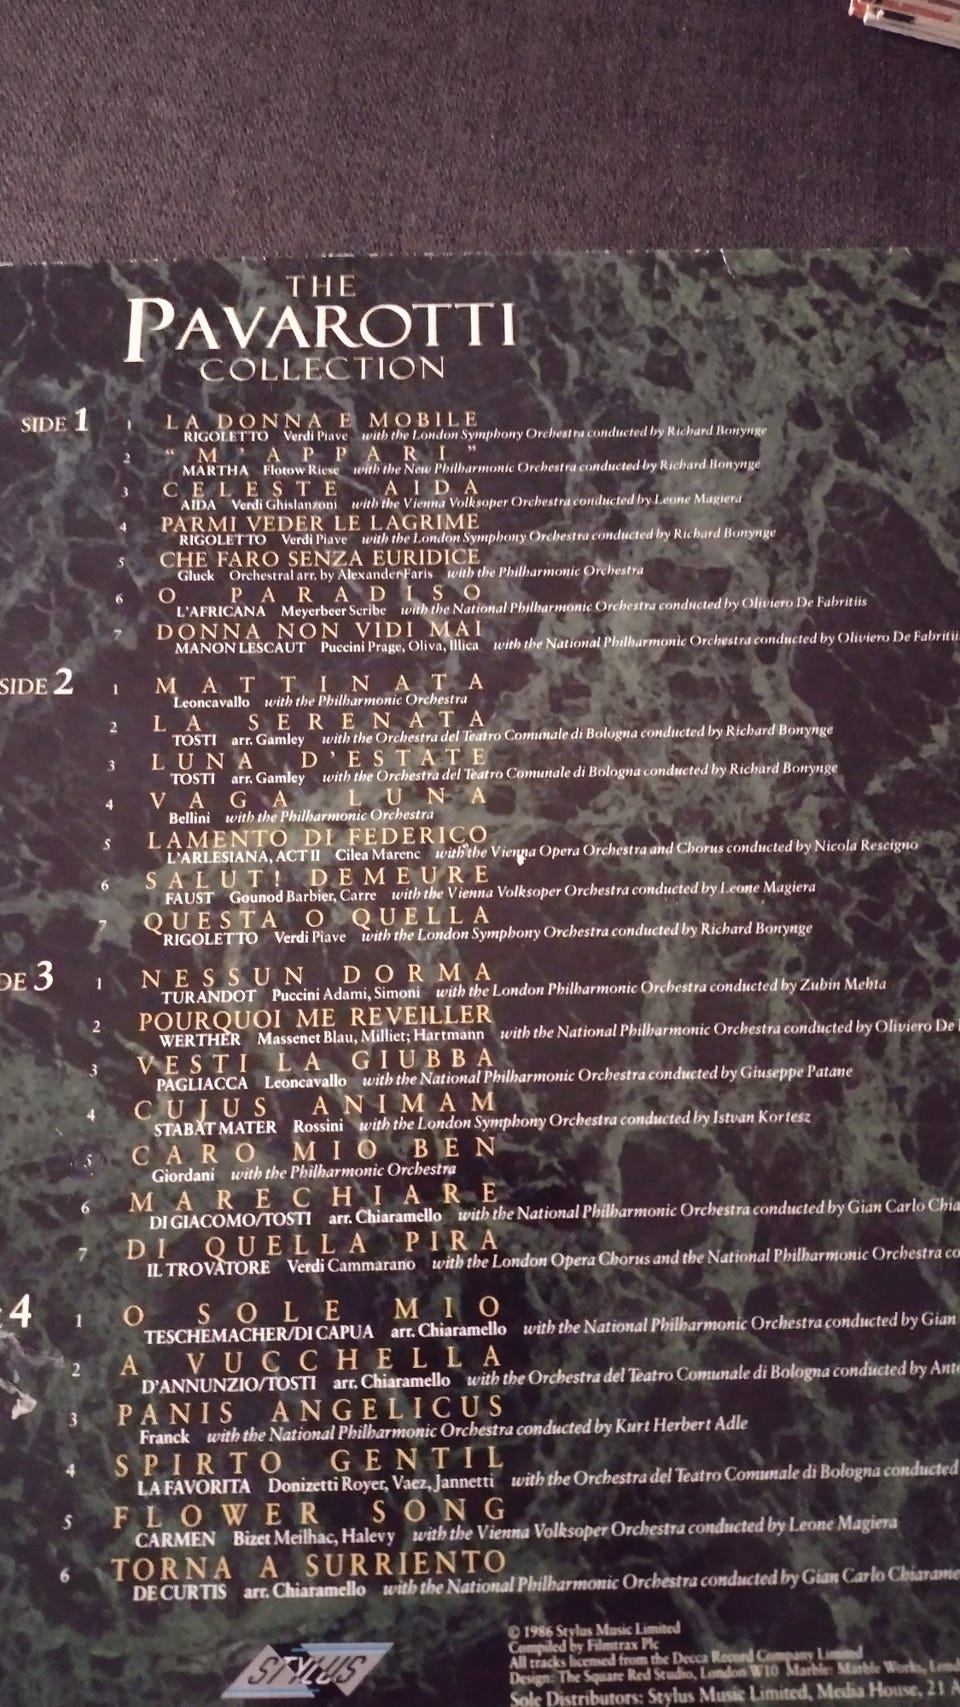 THE
PAVAROTTI
COLLECTION
SIDE 1
1 LA DONNA E MOBILE
RIGOLETTO Verdi Piave with the London Symphony Orchestra conducted by Richard Bonynge
2 "M'APPARI"
MARTHA Flotow Riese with the New Philharmonic Orchestra conducted by Richard Bonynge
3 CELESTE AIDA
AIDA Verdi Ghislanzoni with the Vienna Volksoper Orchestra conducted by Leone Magiera
4 PARMI VEDER LE LAGRIME
RIGOLETTO Verdi Piave with the London Symphony Orchestra conducted by Richard Bonynge
5 CHE FARO SENZA EURIDICE
Gluck Orchestral arr. by Alexander Faris with the Philharmonic Orchestra
6 O PARADISO
L'AFRICANA Meyerbeer Scribe with the National Philharmonic Orchestra conducted by Oliviero De Fabritiis
7 DONNA NON VIDI MAI
MANON LESCAUT Puccini Prage, Oliva, Illica with the National Philharmonic Orchestra conducted by Oliviero De Fabritii
SIDE 2
1 MATTINATA
Leoncavallo with the Philharmonic Orchestra
2 LA SERENATA
TOSTI arr. Gamley with the Orchestra del Teatro Comunale di Bologna conducted by Richard Bonynge
3 LUNA D'ESTATE
TOSTI arr. Gamley with the Orchestra del Teatro Comunale di Bologna conducted by Richard Bonynge
4 VAGA LUNA
Bellini with the Philharmonic Orchestra
5 LAMENTO DI FEDERICO
L'ARLESIANA, ACT II Cilea Marenc with the Vienna Opera Orchestra and Chorus conducted by Nicola Rescigno
6 SALUT! DEMEURE
FAUST Gounod Barbier, Carre with the Vienna Volksoper Orchestra conducted by Leone Magiera
7 QUESTA O QUELLA
RIGOLETTO Verdi Piave with the London Symphony Orchestra conducted by Richard Bonynge
DE 3
1 NESSUN DORMA
TURANDOT Puccini Adami, Simoni with the London Philharmonic Orchestra conducted by Zubin Mehta
2 POURQUOI ME REVEILLER
WERTHER Massenet Blau, Milliet; Hartmann with the National Philharmonic Orchestra conducted by Oliviero De
3 VESTI LA GIUBBA
PAGLIACCA Leoncavallo with the National Philharmonic Orchestra conducted by Giuseppe Patane
4 CUJUS ANIMAM
STABAT MATER Rossini with the London Symphony Orchestra conducted by Istvan Kortesz
5 CARO MIO BEN
Giordani with the Philharmonic Orchestra
6 MARECHIARE
DI GIACOMO/TOSTI arr. Chiaramello with the National Philharmonic Orchestra conducted by Gian Carlo Chia
7 DI QUELLA PIRA
IL TROVATORE Verdi Cammarano with the London Opera Chorus and the National Philharmonic Orchestra co
4
1 O SOLE MIO
TESCHEMACHER/DI CAPUA arr. Chiaramello with the National Philharmonic Orchestra conducted by Gian
2 A VUCCHELLA
D'ANNUNZIO/TOSTI arr. Chiaramello with the Orchestra del Teatro Comunale di Bologna conducted by Ant
3 PANIS ANGELICUS
Franck with the National Philharmonic Orchestra conducted by Kurt Herbert Adle
4 SPIRTO GENTIL
LA FAVORITA Donizetti Royer, Vaez, Jannetti with the Orchestra del Teatro Comunale di Bologna conducted
5 FLOWER SONG
CARMEN Bizet Meilhac, Halevy with the Vienna Volksoper Orchestra conducted by Leone Magiera
6 TORNA A SURRIENTO
DE CURTIS arr. Chiaramello with the National Philharmonic Orchestra conducted by Gian Carlo Chiarame
STYLUS
© 1986 Stylus Music Limited
Compiled by Filmtrax Plc
All tracks licensed from the Decca Record Company Limited
Design: The Square Red Studio, London W10 Marble: Marble Works, Lond
Sole Distributors: Stylus Music Limited, Media House, 21 A